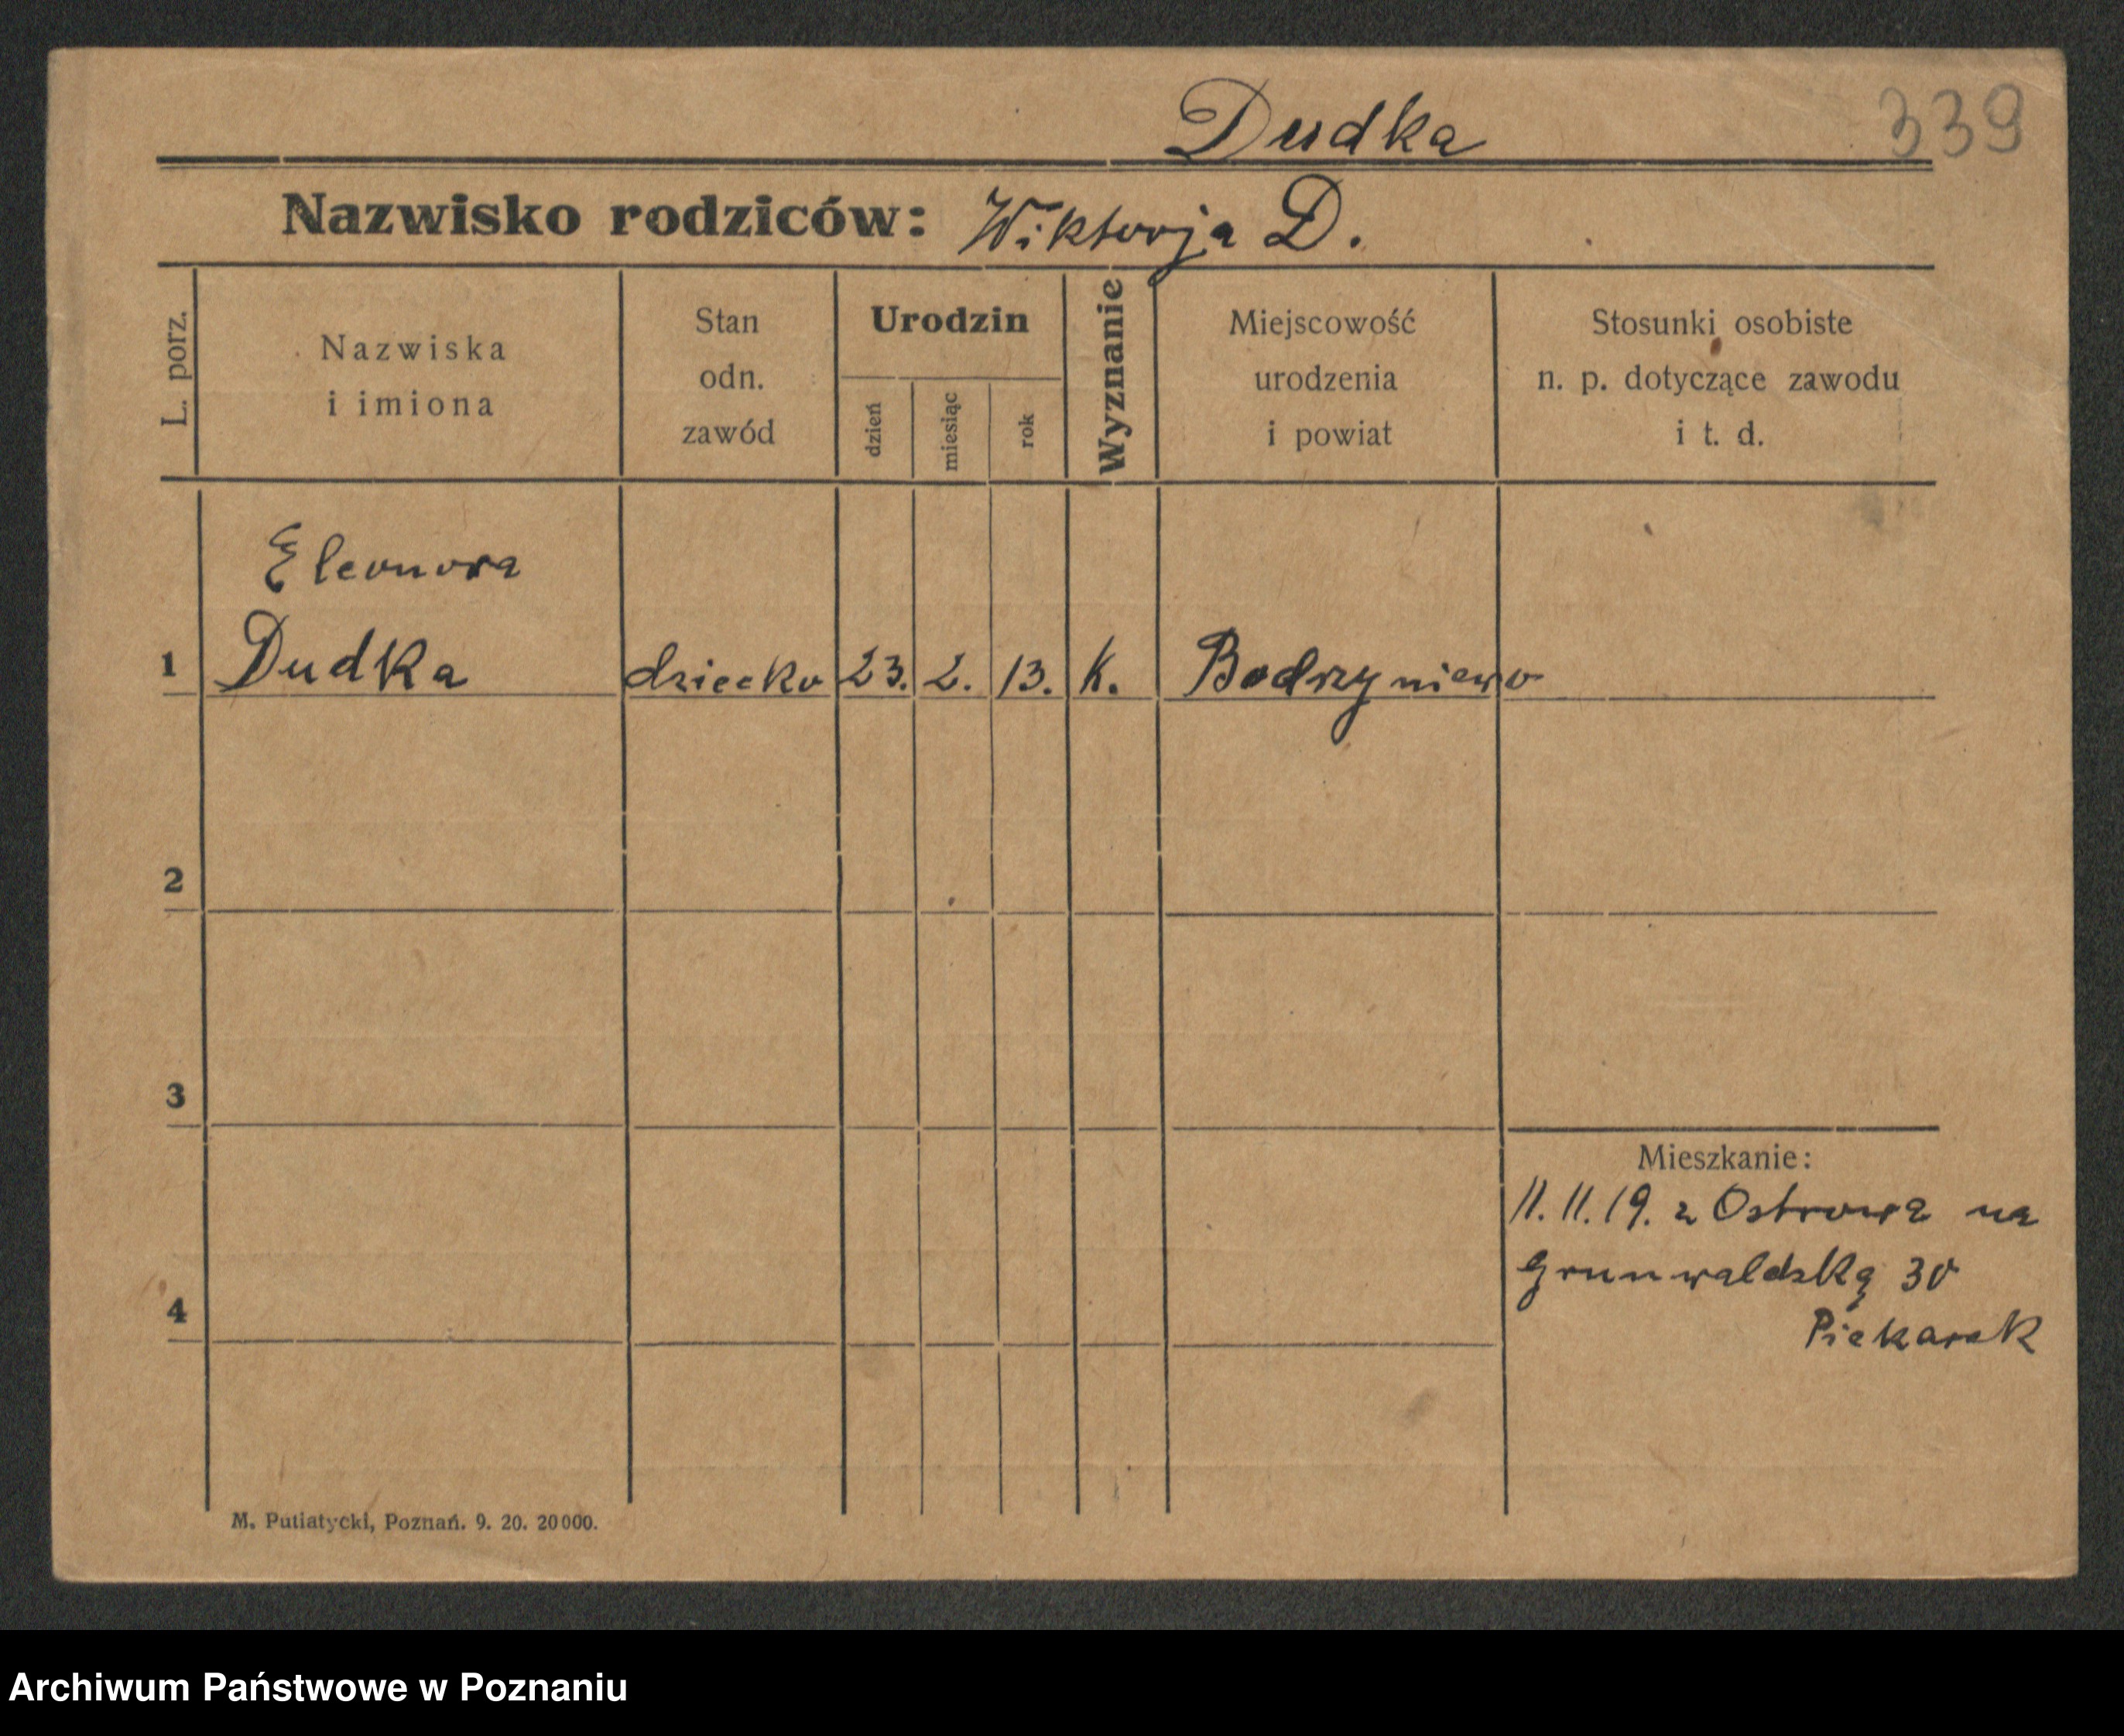 Dudka
339
Nazwisko rodziców: Wiktorja D.
L. porz.
Nazwiska
i imiona
Stan
odn.
zawód
Urodzin
dzień
miesiąc
rok
Wyznanie
Miejscowość
urodzenia
i powiat
Stosunki osobiste
n. p. dotyczące zawodu
i t. d.
Eleonora
1 Dudka dziecko 23. 2. 13. K. Bodzyniewo
2
3
Mieszkanie:
11. 11. 19. z Ostrowa na
Grunwaldzką 30
4
Piekarek
M. Putiatycki, Poznań. 9. 20. 20000.
Archiwum Państwowe w Poznaniu